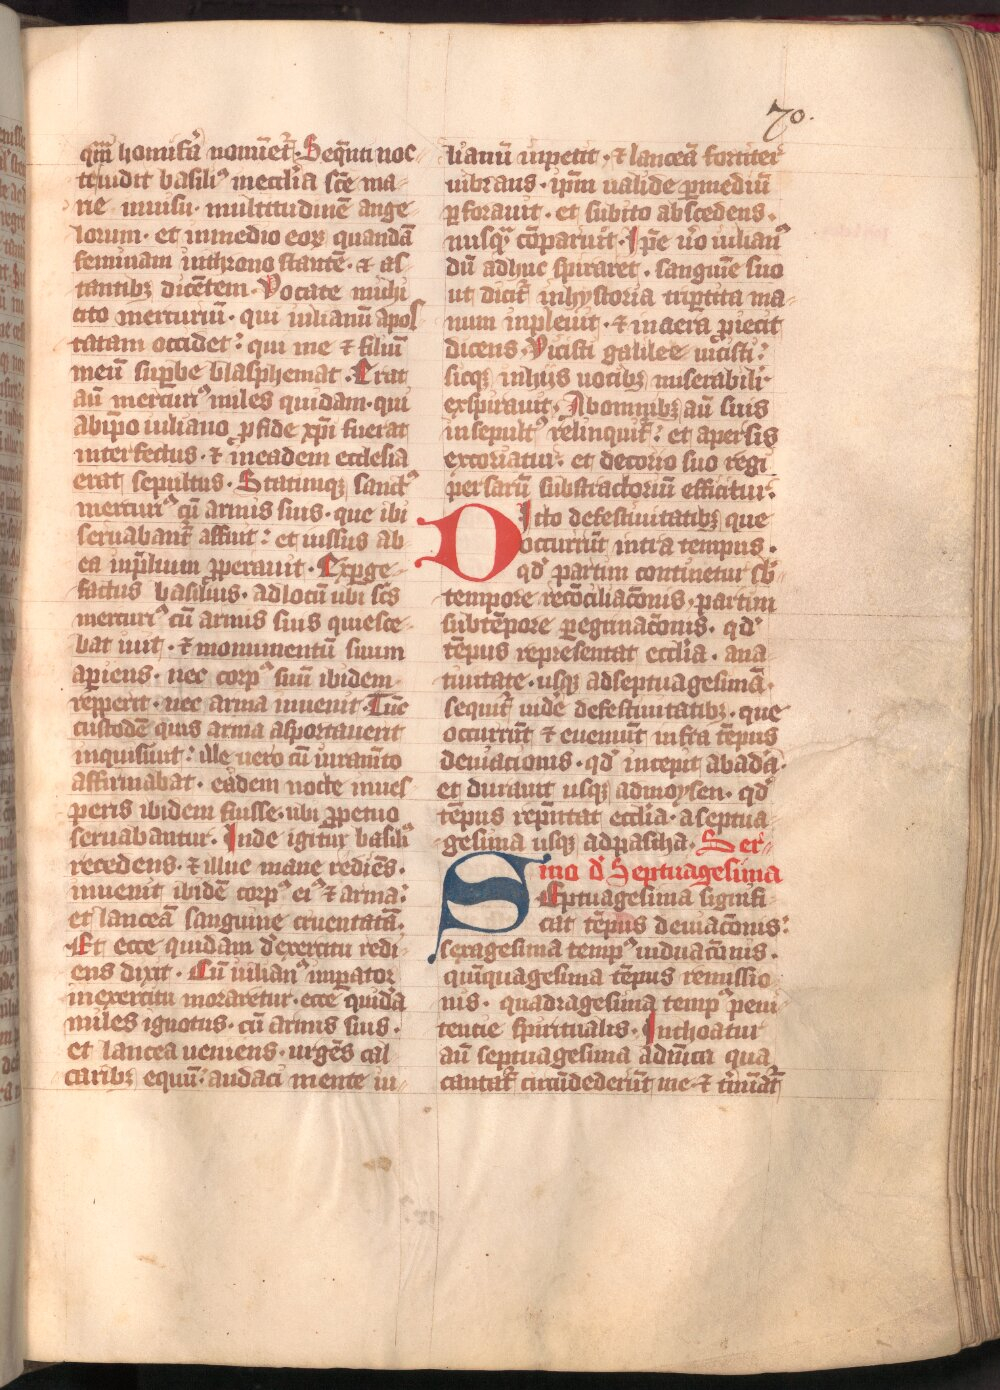 70.
qm̄ homicid' nomiēt'. Sequēti noc
te uidit basili' in ecclīa sc̄e ma
rie in uisu. multitudinē ange
lorum. et in medio eoꝝ quandā
feminam in throno stantē. ⁊ as
tantibꝫ dicētem. Vocate michi
cito mercuriū. qui iulianū apos
tatam occidet: qui me ⁊ filiū
meū supbe blasphemat. Erat
aū mercuri' miles quidam. qui
ab ipo iuliano ꝓ fide xpi fuerat
interfectus. ⁊ in eadem ecclesia
erat sepultus. Statimqꝫ sanct'
mercuri' cū armis suis. que ibi
seruabant' affuit: et iussus ab
ea in p̄lium ꝓperauit. Exꝑge
factus basilius. ad locū ubi sc̄s
mercuri' cū armis suis quiesce
bat iuit. ⁊ monumentū suum
apiens. nec corp' suū ibidem
repperit. nec arma inuenit. Tūc
custodē quis arma asportauerit
inquisiuit: ille uero cū iuramēto
affirmabat. eadem nocte in ues
peris ibidem fuisse. ubi ꝑpetuo
seruabantur. Inde igitur basili'
recedens. ⁊ illuc mane rediēs.
inuenit ibidē corp' ei' ⁊ arma:
et lanceā sanguine cruentatā.
Et ecce quidam d' exercitu redi
ens dixit. Cū iulian' impator
in exercitu moraretur. ecce quidā
miles ignotus. cū armis suis.
et lancea ueniens. urgēs cal
caribꝫ equū. audaci mente iu
lianū inpetit. ⁊ lanceā fortiter
uibrans. ipm ualide ꝑ mediū
ꝑforauit. et subito abscedens.
nusqᷓ cōparuit. Ipe ūo iulian'
dū adhuc spiraret. sanguīe suo
ut dicit' in hystoria tripertita ma
num inpleuit. ⁊ in aera ꝓiecit
dicens. Vicisti galilee uicisti:
sicqꝫ in hiis uocibꝫ miserabili'
exspirauit. Ab omnibꝫ aū suis
insepult' relinquit': et a persis
excoriatur. et de corio suo regi
persarū substractorium efficitur.
Dicto de festiuitatibꝫ que
occurrūt intra tempus.
qd' partim continetur sb'
tempore recōciliac̄onis. partim
sub tēpore ꝑegrinac̄onis. qd'
tēpus representat ecclīa. a na
tiuitate. usqꝫ ad septuagesimā.
sequit' uidē de festiuitatibꝫ. que
occurrūt ⁊ eueniūt infra tēpus
deuiacionis. qd' incepit ab adā.
et durauit usqꝫ ad moysen. qd'
tēpus repn̄tat ecclīa. a septua
gesima usqꝫ ad pascha. Ser
mo d' Septuagesima
Septuagesima signifi
cat tēpus deuiac̄onis:
sexagesima temp' uiduac̄onis.
quīquagesima tēpus remissio
nis. quadragesima temp' peni
tencie spiritualis. Inchoatur
aū septuagesima a dn̄ica qua
cantat' circūdederūt me. ⁊ t'mīat'